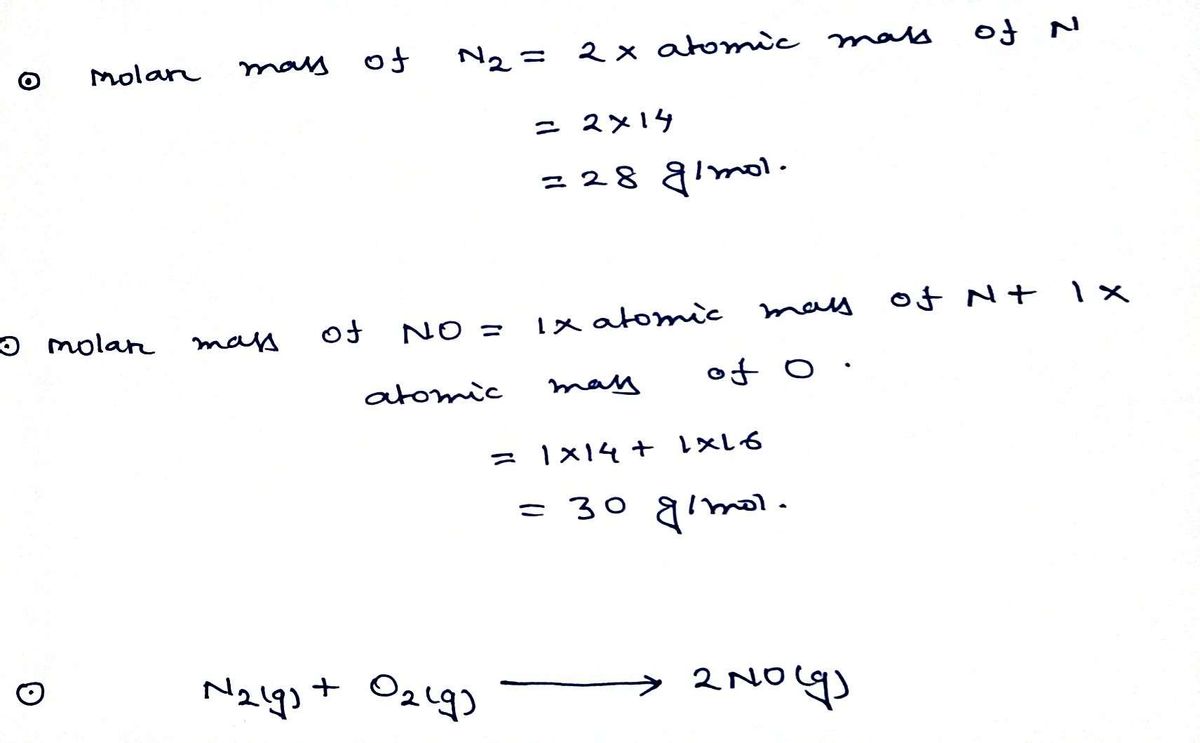 ⊙ Molar mass of N₂ = 2 x atomic mass of N
= 2x14
= 28 g/mol.
⊙ molar mass of NO = 1x atomic mass of N + 1x
atomic mass of O.
= 1x14 + 1x16
= 30 g/mol.
⊙ N₂(g) + O₂(g) ⟶ 2NO(g)